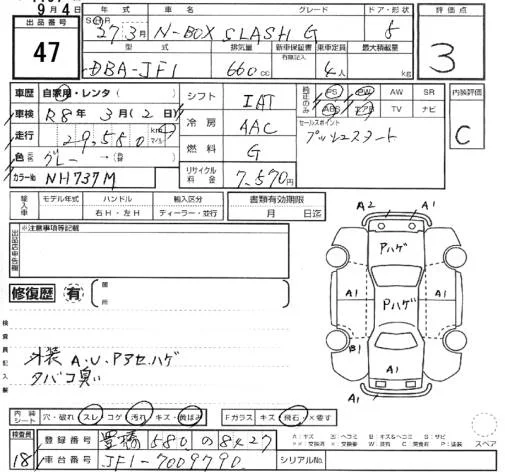 9月4日
出品番号
47
年式 車名 グレード ドア・形状
27年3月 N-BOX SLASH G 5
型式 排気量 新車保証書 有限記入 乗車定員 最大積載量
DBA-JF1 660cc 4人 kg
評価点
3
内装評価
C
車歴 自家用・レンタ( )
車検 R8年3月(2日)
走行 29,580 km マイル
色 元色 グレー →(替色 )
カラーNo NH737M
シフト IAT
冷房 AAC
燃料 G
リサイクル料金 7,570円
純正のみ
PS PW AW SR
ABS エアB TV ナビ
セールスポイント
プッシュスタート
輸入車 モデル年式 ハンドル 輸入区分
右H・左H ディーラー・並行
書類有効期限
月 日迄
出品店申告欄
※注意事項等記載
修復歴 有
箇所
検査員記入欄
外装 A.U.Pアセ.ハゲ
タバコ臭い
A2 A1
Pハゲ
A1 Pハゲ A1
B1
A1
内装シート 穴・破れ スレ コゲ 汚れ キズ・黄ばみ
Fガラス キズ 飛石 ×要す
検査員
18
登録番号 豊橋 580 の 8427
車台番号 JF1-7009790
シリアルNo.
スペア